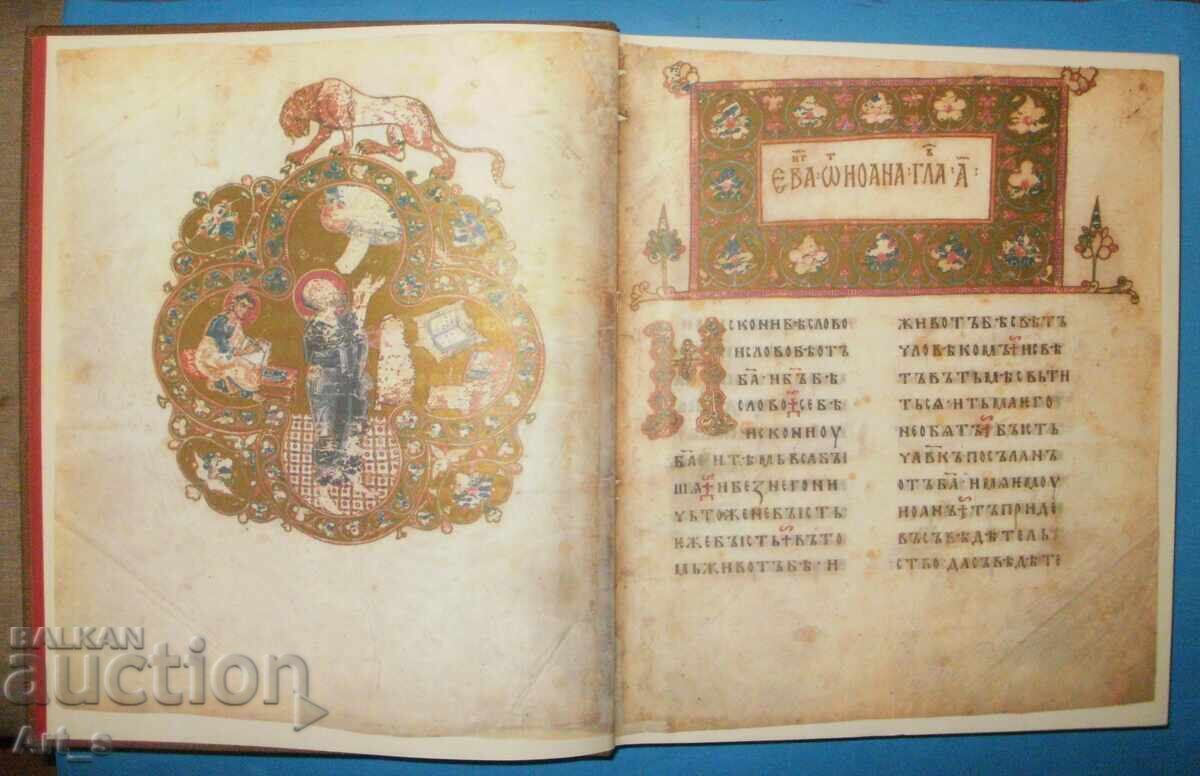 ЕВАⷩ҇Гⷢ · Ѿ ИОАНА · ГЛАⷡ · А҃ :
Искони бѣ слово
и слово бѣ отъ
б҃а · и б҃ъ бѣ
слово · се бѣ
искони оу
б҃а и тѣмь вса бꙑ
шѧ · и без него ни
чьтоже не бꙑсть
иже бꙑсть · въ то
мь животъ бѣ · и
животъ бѣ свѣтъ
чловѣкомъ · и свѣ
тъ въ тьмѣ свьти
тьсѧ · и тьма ѥго
не обѧтъ · бꙑсть
чл҃вкъ посъланъ
отъ б҃а · имѧ ѥмоу
иоанъ · тъ приде
въ съвѣдѣтель
ство да съвѣдѣте
BALKAN
auction
Art_s